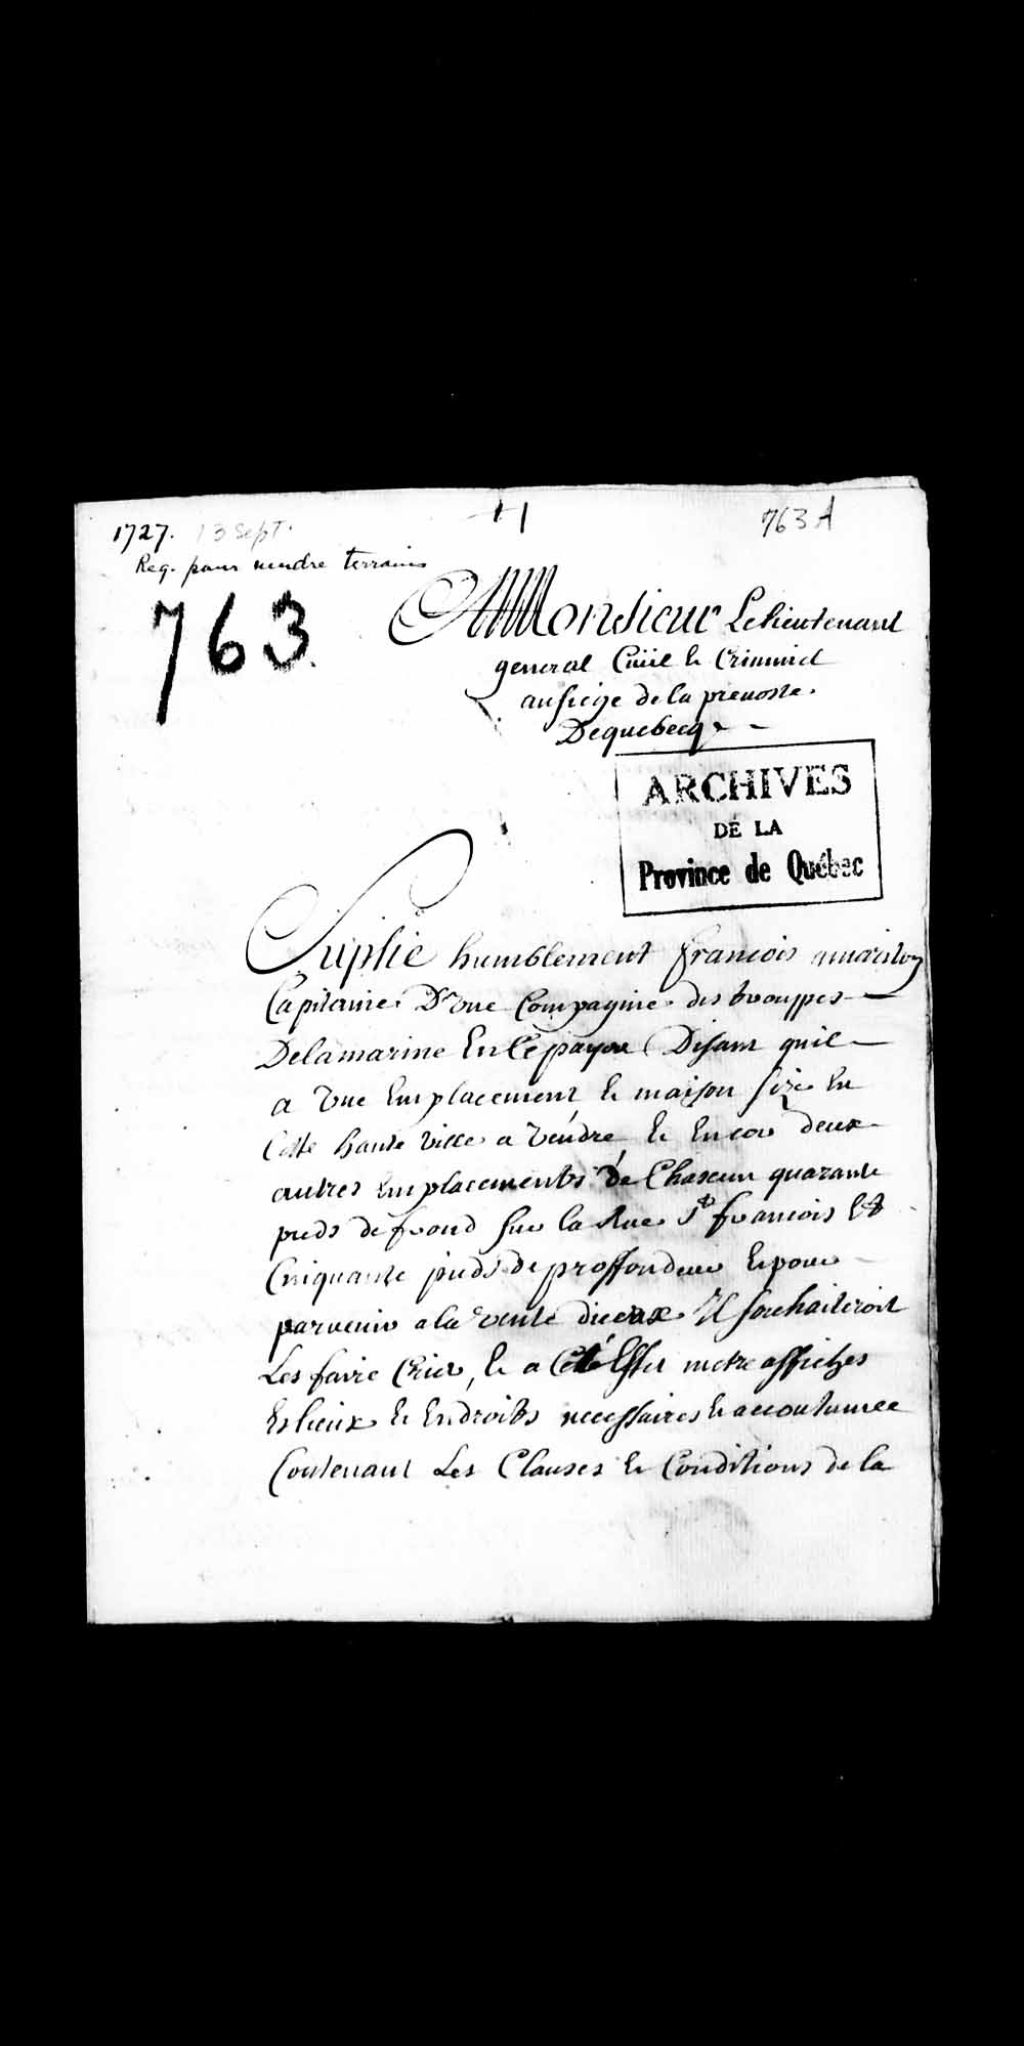 1727. 13 Sept.
763 A
Req. pour vendre terrains
763.
A Monsieur Le lieutenant
general Civil et Criminel
au siege de la prevoste.
De quebecq
ARCHIVES
DE LA
Province de Québec
Suplie humblement francois
Capitaine D'une Compagnie des trouppes
De la marine En Ce payis Disant quil
a une Emplacement et maison size En
Cette haute ville a vendre et Encor deux
autres Emplacements de Chascun quarante
pieds de frond sur la Rue St francois Et
Cinquante pieds de proffondeur Et pour
parvenir a la vente diceux Il souhaiteroit
Les faire Crier, Et a Cet Effet metre affiches
Es lieux Et Endroits necessaires Et accoutumee
Contenant Les Clauses Et Conditions de la